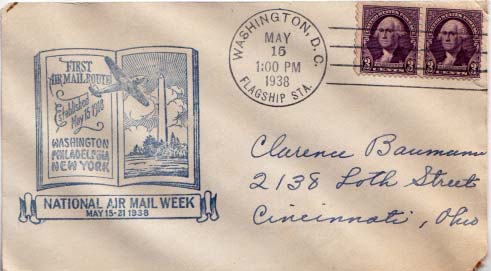 FIRST
AIR MAIL ROUTE
Established
May 15 1918
WASHINGTON
PHILADELPHIA
NEW YORK
NATIONAL AIR MAIL WEEK
MAY 15-21 1938
WASHINGTON, D.C.
MAY
15
1:00 PM
1938
FLAGSHIP STA.
3 CENTS 3
3 CENTS 3
Clarence Baumann
2138 Loth Street
Cincinnati, Ohio